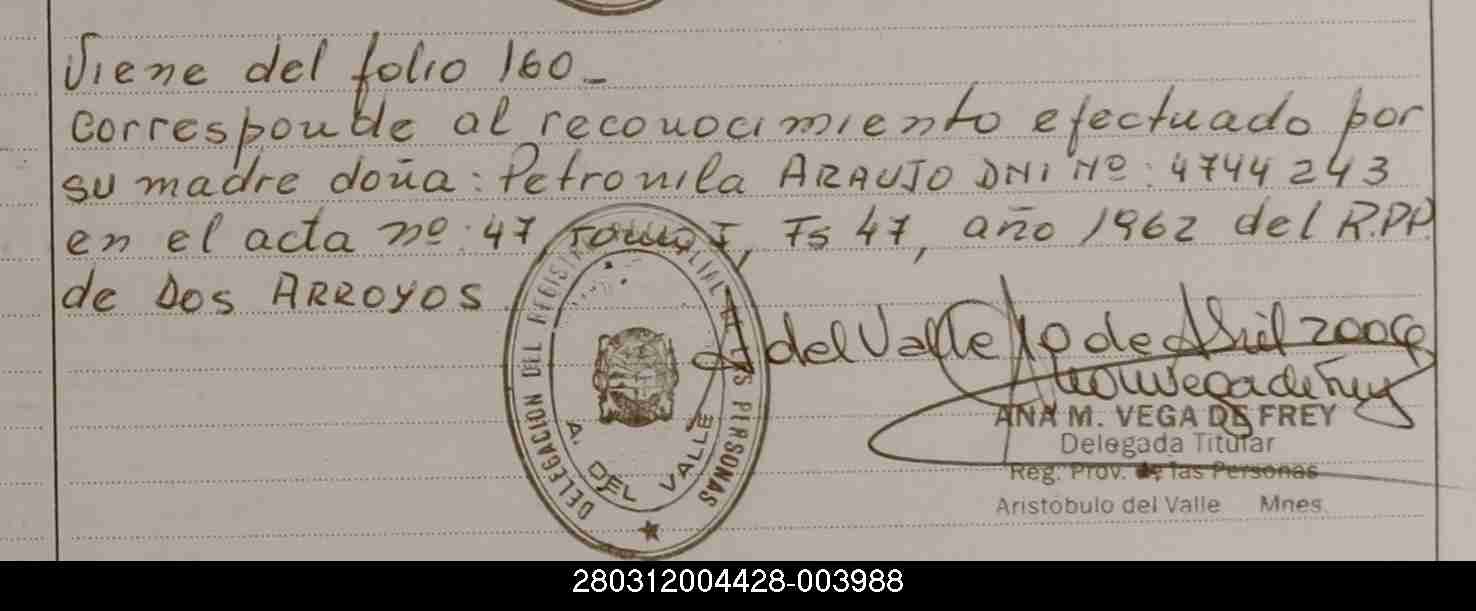 Viene del folio 160_
corresponde al reconocimiento efectuado por
su madre doña: Petronila ARAUJO DNI Nº: 4744243
en el acta nº: 47, tomo I, Fs 47, año 1962 del R.P.P.
de Dos ARROYOS
A del Valle 10 de Abril 2006
DELEGACION DEL REGISTRO PROVINCIAL DE LAS PERSONAS
A. DEL VALLE
ANA M. VEGA DE FREY
Delegada Titular
Reg. Prov. de las Personas
Aristóbulo del Valle Mnes.
280312004428-003988